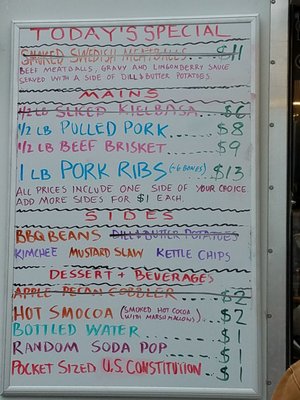 TODAY'S SPECIAL
SMOKED SWEDISH MEATBALLS $11
BEEF MEATBALLS, GRAVY AND LINGONBERRY SAUCE
SERVED WITH A SIDE OF DILL & BUTTER POTATOES
MAINS
1/2 LB SLICED KIELBASA $6
1/2 LB PULLED PORK.... $8
1/2 LB BEEF BRISKET.... $9
1 LB PORK RIBS (~6 BONES) $13
ALL PRICES INCLUDE ONE SIDE OF YOUR CHOICE.
ADD MORE SIDES FOR $1 EACH.
SIDES
BBQ BEANS DILL & BUTTER POTATOES
KIMCHEE MUSTARD SLAW KETTLE CHIPS
DESSERT + BEVERAGES
APPLE PECAN COBBLER $2
HOT SMOCOA (SMOKED HOT COCOA WITH MARSHMALLOWS) $2
BOTTLED WATER $1
RANDOM SODA POP $1
POCKET SIZED U.S. CONSTITUTION $1